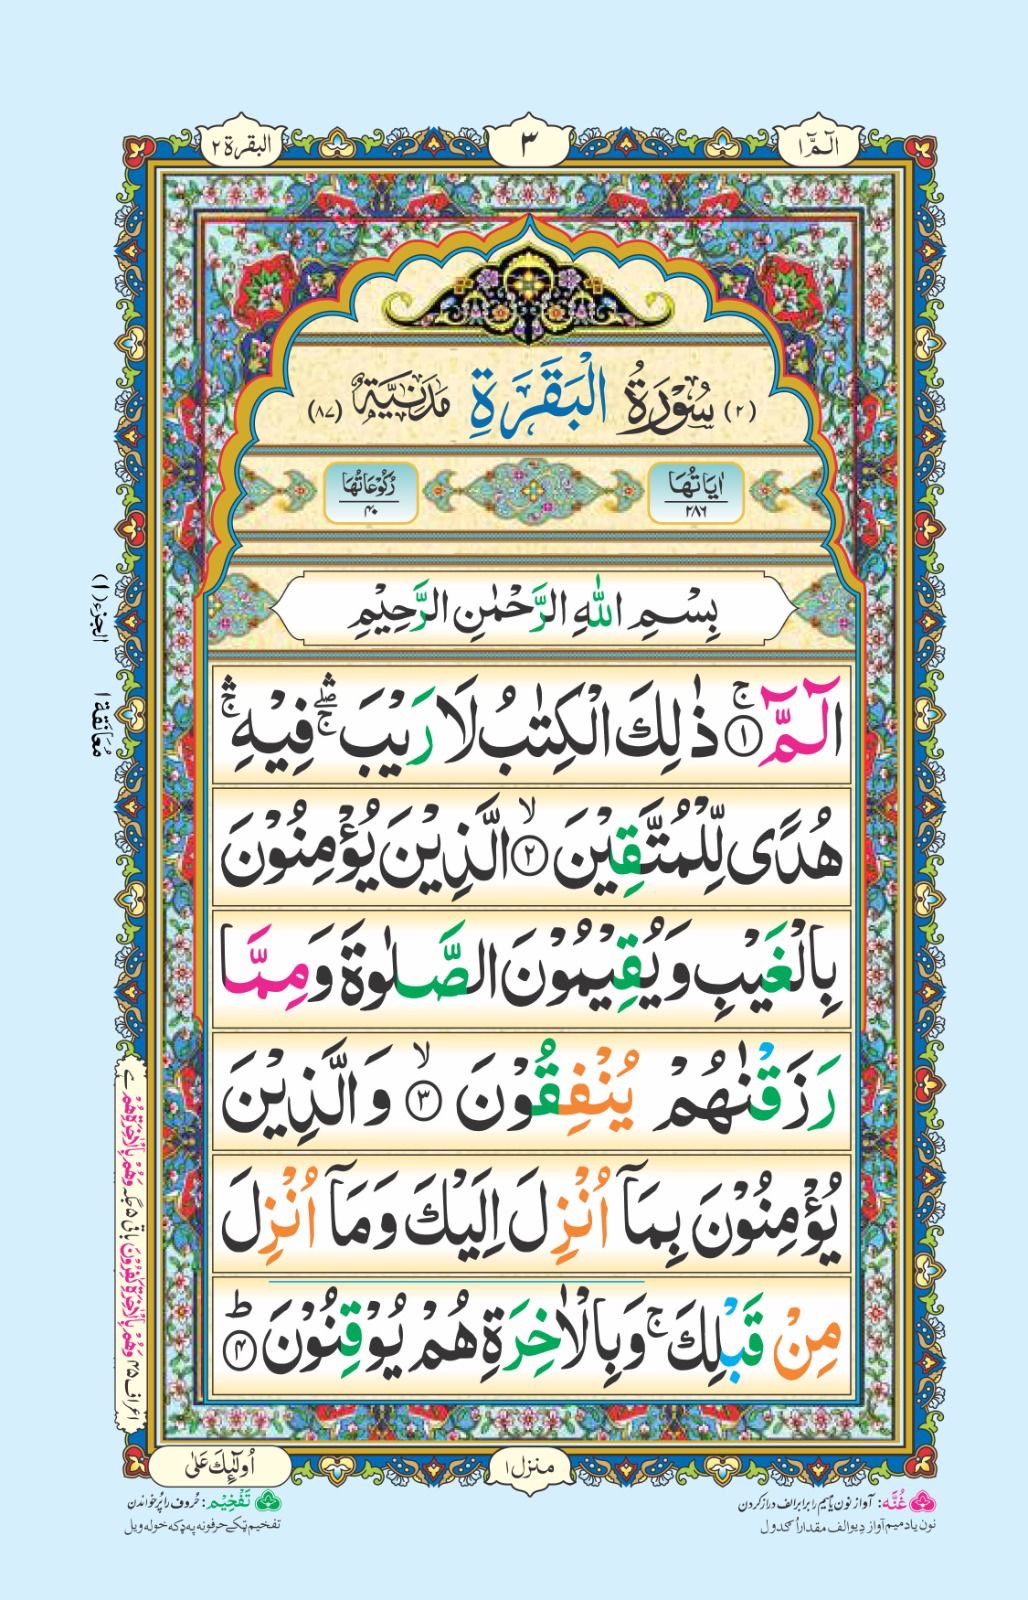 الٓمّٓ ۱
۳
البقرة ۲
(۲) سُوْرَةُ الْبَقَرَةِ مَدَنِيَّةٌ (۸۷)
اٰيَاتُهَا ۲۸۶
رُكُوْعَاتُهَا ۴۰
بِسْمِ اللّٰهِ الرَّحْمٰنِ الرَّحِيْمِ
الٓمّٓ ۚ﴿۱﴾ ذٰلِكَ الْكِتٰبُ لَا رَيْبَ ۛۚۖ فِيْهِ ۛۚ
هُدًى لِّلْمُتَّقِيْنَ ۙ﴿۲﴾ الَّذِيْنَ يُؤْمِنُوْنَ
بِالْغَيْبِ وَيُقِيْمُوْنَ الصَّلٰوةَ وَمِمَّا
رَزَقْنٰهُمْ يُنْفِقُوْنَ ۙ﴿۳﴾ وَالَّذِيْنَ
يُؤْمِنُوْنَ بِمَآ اُنْزِلَ اِلَيْكَ وَمَآ اُنْزِلَ
مِنْ قَبْلِكَ ۚ وَبِالْاٰخِرَةِ هُمْ يُوْقِنُوْنَ ؕ﴿۴﴾
الجزء (۱)
مُعَانَقة ۱
اعراف ۴۵ وَهُمْ بِالْاٰخِرَةِ كٰفِرُوْنَ باقی ۵ جگہ وَهُمْ بِالْاٰخِرَةِ هُمْ ہے
منزل ۱
اُولٰٓئِكَ عَلٰى
غُنَّه: آواز نون یا میم را برابر الف دراز کردن
نون یا د میم آواز دیو الف مقدار اُگدول
تَفْخِیْم: حُروف را پُر خواندن
تفخیم ټکے حرفونه په ډکه خوله ویل